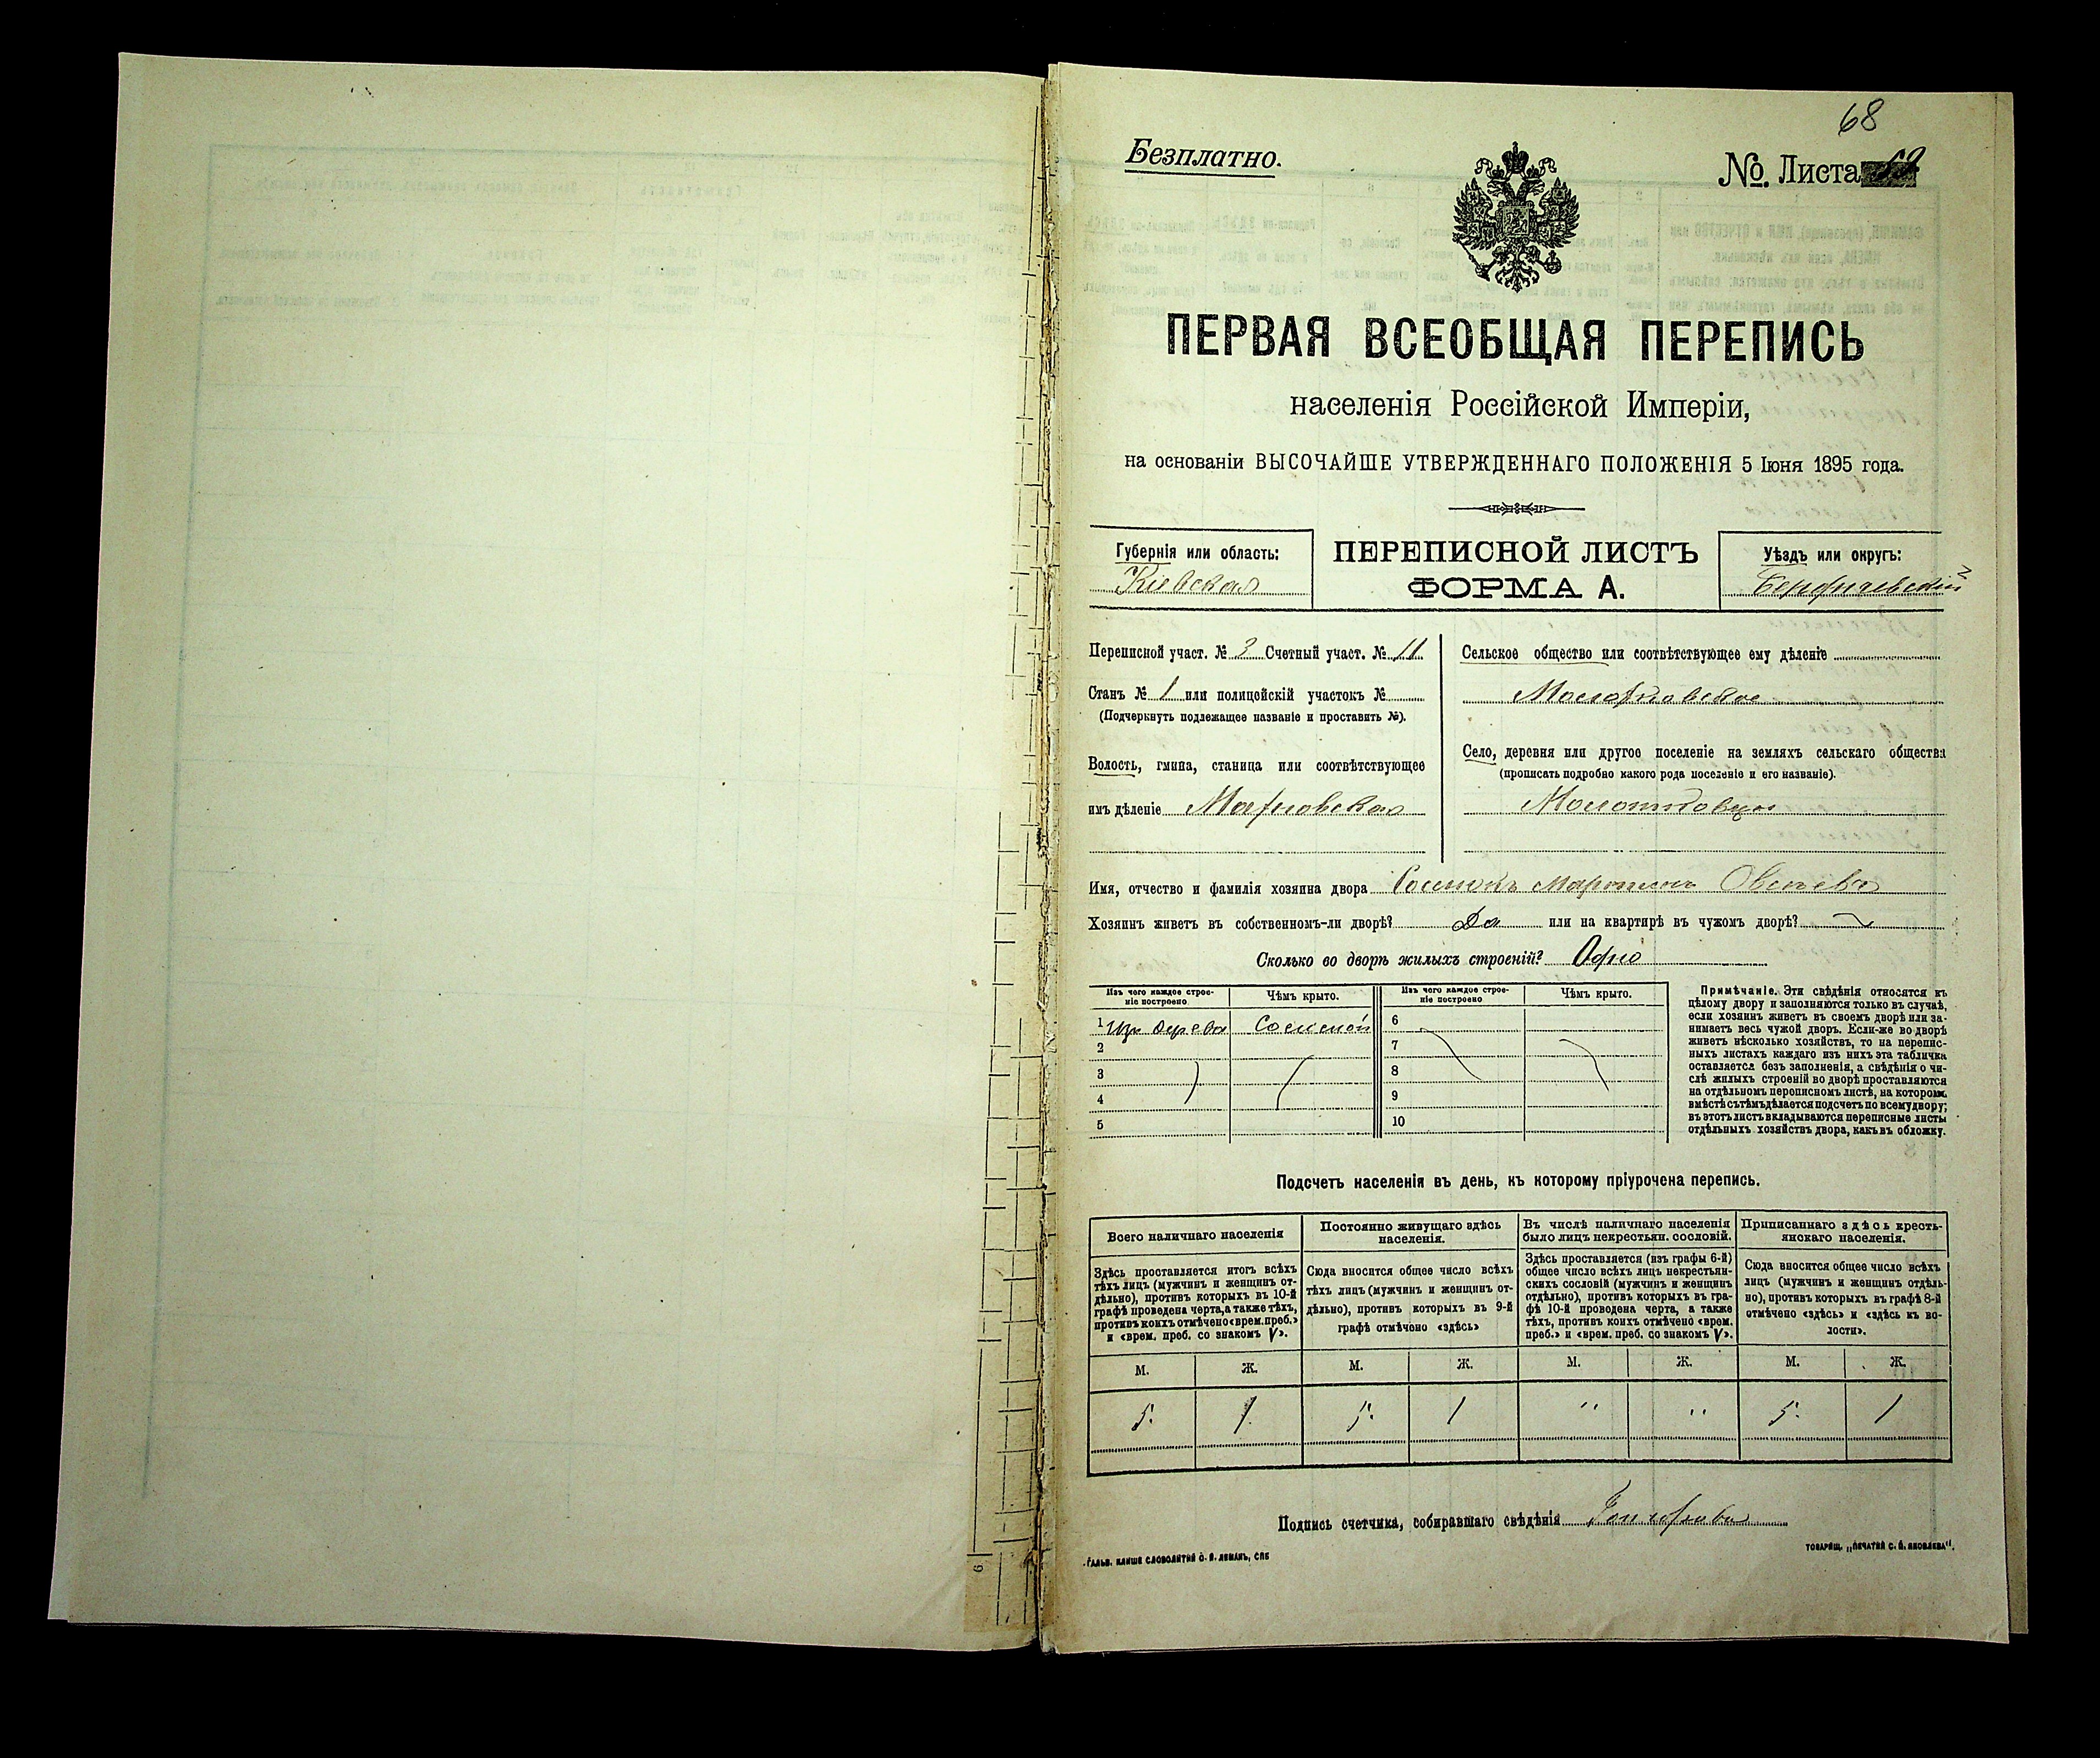 68
Безплатно.
№. Листа
ПЕРВАЯ ВСЕОБЩАЯ ПЕРЕПИСЬ
населенія Россійской Имперіи,
на основаніи ВЫСОЧАЙШЕ УТВЕРЖДЕННАГО ПОЛОЖЕНІЯ 5 Іюня 1895 года.
Губернія или область:
Кіевская
ПЕРЕПИСНОЙ ЛИСТЪ
ФОРМА А.
Уѣздъ или округъ:
Бердичевскій
Переписной участ. № 3 Счетный участ. № 11
Станъ № 1 или полицейскій участокъ №
(Подчеркнуть подлежащее названіе и проставить №).
Волость, гмина, станица или соотвѣтствующее
имъ дѣленіе Махновская
Сельское общество или соотвѣтствующее ему дѣленіе
Село, деревня или другое поселеніе на земляхъ сельскаго общества
(прописать подробно какого рода поселеніе и его названіе).
Имя, отчество и фамилія хозяина двора
Хозяинъ живетъ въ собственномъ-ли дворѣ? Да или на квартирѣ въ чужомъ дворѣ?
Сколько во дворѣ жилыхъ строеній? Одно
Изъ чего каждое строе-
ніе построено
Чѣмъ крыто.
Изъ чего каждое строе-
ніе построено
Чѣмъ крыто.
1 Изъ дерева Соломой
2
3
4
5
6
7
8
9
10
Примѣчаніе. Эти свѣдѣнія относятся къ
цѣлому двору и заполняются только въ случаѣ,
если хозяинъ живетъ въ своемъ дворѣ или за-
нимаетъ весь чужой дворъ. Если-же во дворѣ
живетъ нѣсколько хозяйствъ, то на перепис-
ныхъ листахъ каждаго изъ нихъ эта табличка
оставляется безъ заполненія, а свѣдѣнія о чи-
слѣ жилыхъ строеній во дворѣ проставляются
на отдѣльномъ переписномъ листѣ, на которомъ
вмѣстѣ съ тѣмъ дѣлается подсчетъ по всему двору;
въ этотъ листъ вкладываются переписные листы
отдѣльныхъ хозяйствъ двора, какъ въ обложку.
Подсчетъ населенія въ день, къ которому пріурочена перепись.
Всего наличнаго населенія
Здѣсь проставляется итогъ всѣхъ
тѣхъ лицъ (мужчинъ и женщинъ от-
дѣльно), противъ которыхъ въ 10-й
графѣ проведена черта, а также тѣхъ,
противъ коихъ отмѣчено «врем. преб.»
и «врем. преб. со знакомъ V».
Постоянно живущаго здѣсь
населенія.
Сюда вносится общее число всѣхъ
тѣхъ лицъ (мужчинъ и женщинъ от-
дѣльно), противъ которыхъ въ 9-й
графѣ отмѣчено «здѣсь»
Въ числѣ наличнаго населенія
было лицъ некрестьян. сословій.
Здѣсь проставляется (изъ графы 6-й)
общее число всѣхъ лицъ некрестьян-
скихъ сословій (мужчинъ и женщинъ
отдѣльно), противъ которыхъ въ гра-
фѣ 10-й проведена черта, а также
тѣхъ, противъ коихъ отмѣчено «врем.
преб.» и «врем. преб. со знакомъ V».
Приписаннаго здѣсь кресть-
янскаго населенія.
Сюда вносится общее число всѣхъ
лицъ (мужчинъ и женщинъ отдѣль-
но), противъ которыхъ въ графѣ 8-й
отмѣчено «здѣсь» и «здѣсь къ во-
лости».
М. Ж. М. Ж. М. Ж. М. Ж.
5. 1. 5. 1 " " 5. 1
Подпись счетчика, собиравшаго свѣдѣнія
ГАЛЬВ. КЛИШЕ СЛОВОЛИТНИ О. И. ЛЕМАНЪ, СПБ
ТОВАРИЩ. „ПЕЧАТНИ С. П. ЯКОВЛЕВА".